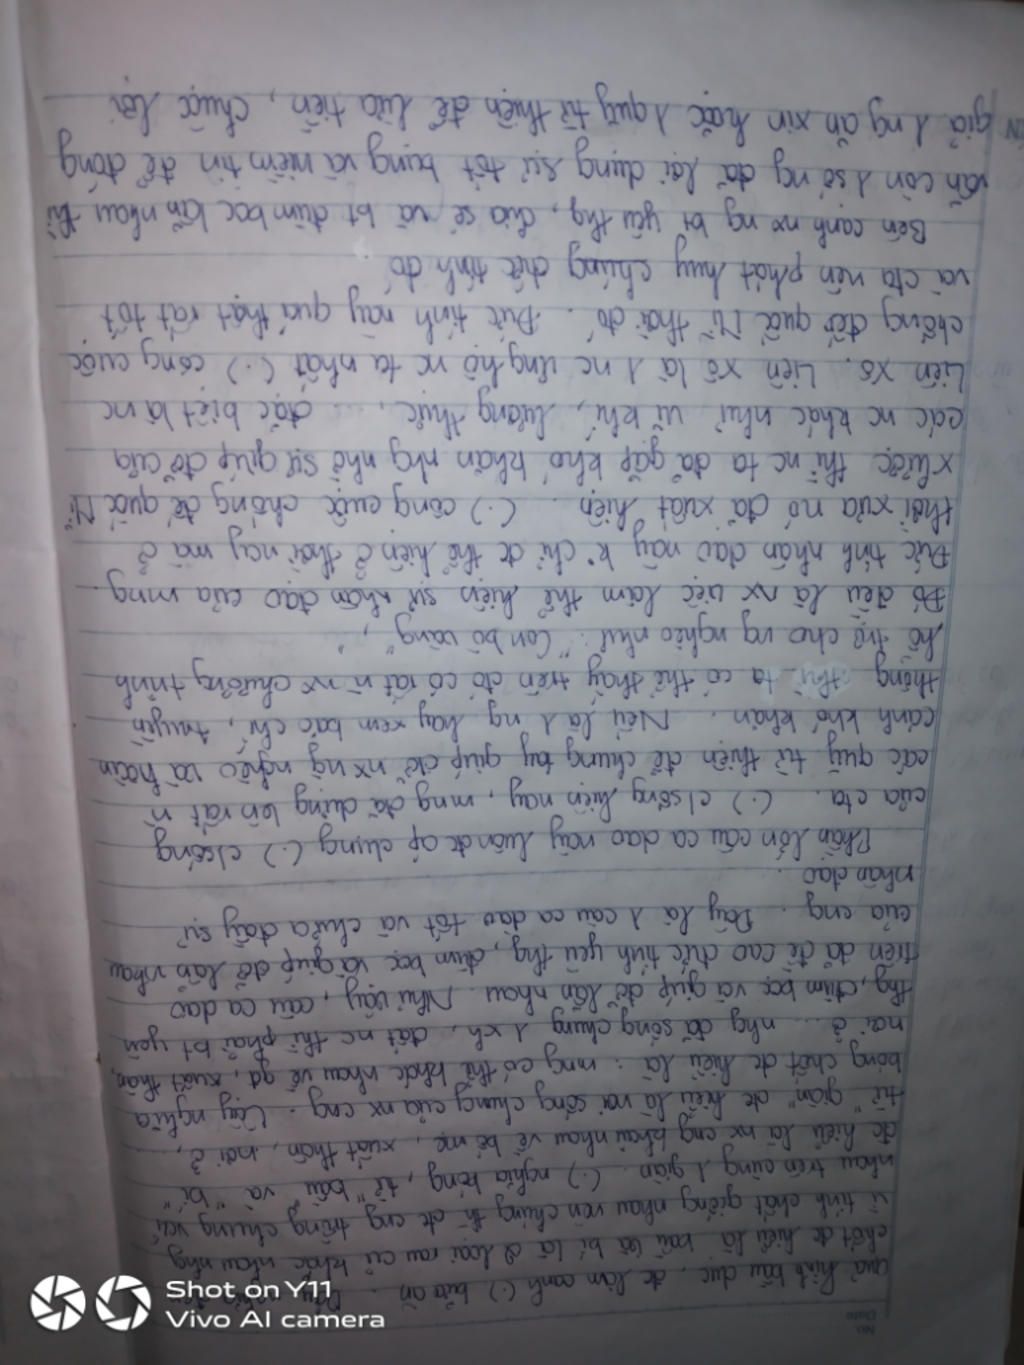 No.
Date
quả hình bầu dục, đc làm canh (.) bữa ăn. nghĩa đen
chất đc hiểu là bầu và bí là 2 loại rau củ khác nhau nhg
vì tính chất giống nhau nên chúng đc cng trồng chung vs
nhau trên cùng 1 giàn. (.) nghĩa bóng, từ "bầu" và "bí"
đc hiểu là nx cng khác nhau về bề mẹ, xuất thân, nơi ở, ...
từ "giàn" đc hiểu là nơi sống chung của nx cng. Vậy nghĩa
bóng chất đc hiểu là: mng có thể khác nhau về gđ, xuất thân,
nơi ở ... nhg đã sống chung 1 xh, đất nc thì phải bt yêu
thg, đùm bọc và giúp đỡ lẫn nhau. Như vậy, câu ca dao
trên đã đề cao đức tính yêu thg, đùm bọc và giúp đỡ lẫn nhau
của cng. Đây là 1 câu ca dao tốt và chứa đầy sự
nhân đạo.
Phần lớn câu ca dao này luôn đc áp dụng (.) c/sống
của cta. (.) c/sống hiện nay, mng đã dựng lên rất n`
các quỹ từ thiện để chung tay giúp đỡ nx ng nghèo và hoàn
cảnh khó khăn. Nếu là 1 ng hay xem báo chí, truyền
thông thì ta có thể thấy trên đó có rất n` nx chương trình
hỗ trợ cho ng nghèo như: "Con bò vàng",
Đó đều là nx việc làm thể hiện sự nhân đạo của mng.
Đức tính nhân đạo này k chỉ đc thể hiện ở thời nay mà ở
thời xưa nó đã xuất hiện. (.) công cuộc chống đế quốc Mĩ
xlược thì nc ta đã gặp khó khăn nhg nhờ sự giúp đỡ của
các nc khác như vũ khí, lương thực, ... đặc biệt là nc
Liên Xô. Liên Xô là 1 nc ủng hộ nc ta nhất (.) công cuộc
chống đế quốc Mĩ thời đó. Đức tính này quả thật rất tốt
và cta nên phát huy chúng đức tính đó.
Bên cạnh nx ng bt yêu thg, chia sẻ và bt đùm bọc lẫn nhau thì
vẫn còn 1 số ng đã lợi dụng sự tốt bụng và niềm tin để đóng
giả 1 ng ăn xin hoặc 1 quỹ từ thiện để lừa tiền, chuộc lợi
Shot on Y11
Vivo AI camera